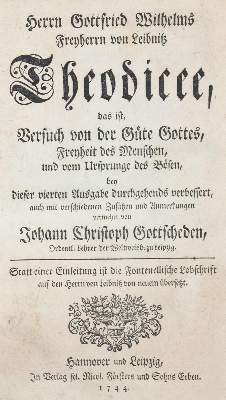 Herrn Gottfried Wilhelms
Freyherrn von Leibnitz
Theodicee,
das ist,
Versuch von der Güte Gottes,
Freyheit des Menschen,
und vom Ursprunge des Bösen,
bey
dieser vierten Ausgabe durchgehends verbessert,
auch mit verschiedenen Zusätzen und Anmerkungen
vermehrt von
Johann Christoph Gottscheden,
Ordentl. Lehrer der Weltweish. zu Leipzig.
Statt einer Einleitung ist die Fontenellische Lobschrift
auf den Herrn von Leibnitz von neuem übersetzt.
Hannover und Leipzig,
Im Verlag sel. Nicol. Försters und Sohns Erben.
1744.